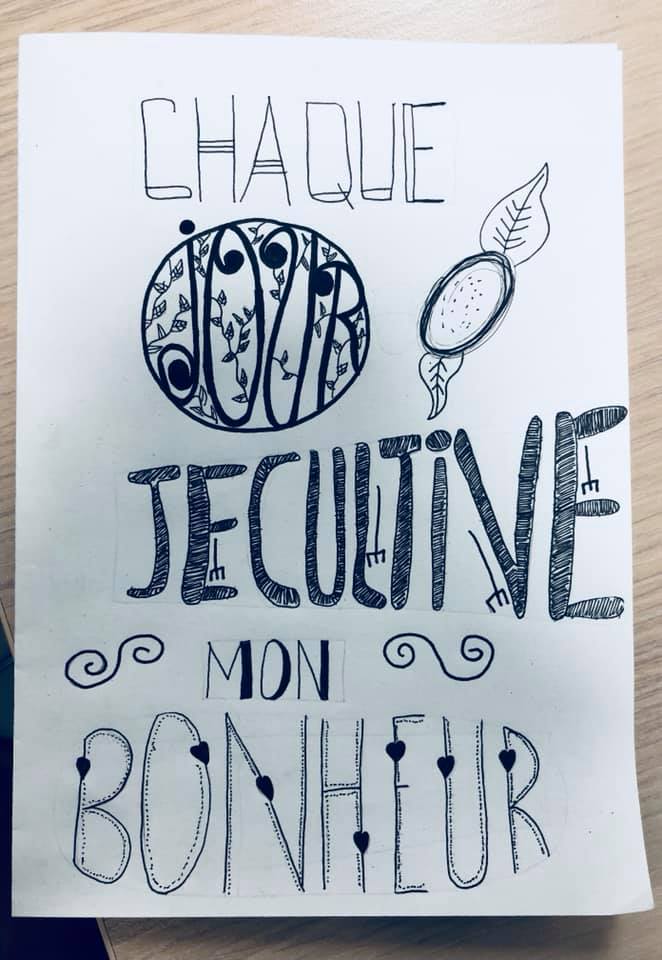 CHAQUE
JOUR
JE CULTIVE
MON
BONHEUR